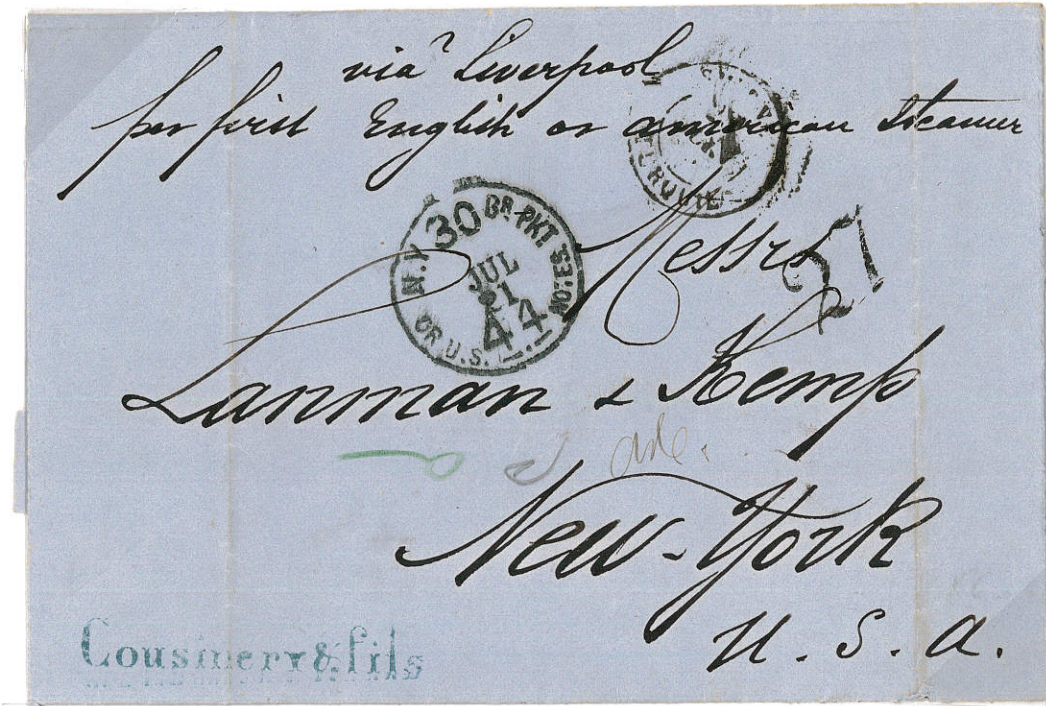 via Liverpool
per first English or american Steamer
N.Y. 30 BR. PKT
JUL
21
44
OR U.S. NOTES
Messrs
21
Lanman & Kemp
New-York
U. S. A.
Cousinery & fils